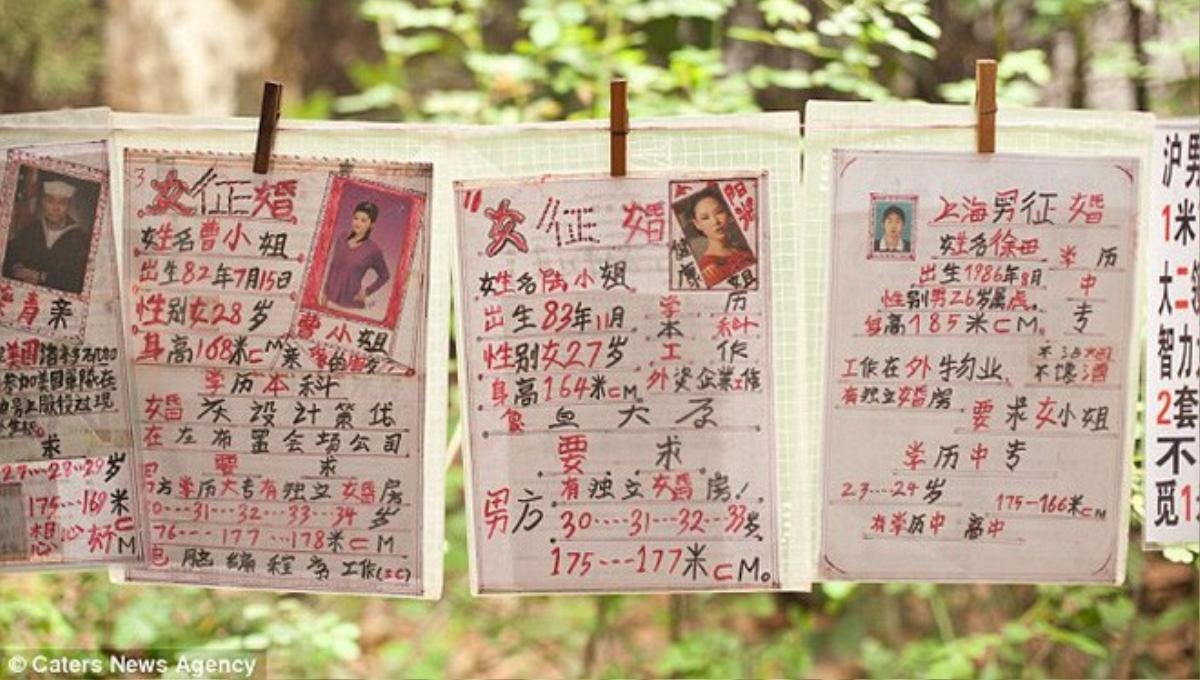 青亲
美国
参加美国军队在
求
27...28...29岁
175...169米
CM
女征婚
女生名曹小姐
出生82年7月15日
性别女28岁
身高168米CM
曹小姐
学历本科
婚庆设计策优
在左布置会场公司
要求
男方学历大专有独立女婚房
30...31...32...33...34岁
76...177...178米CM
电脑编程序工作(工C)
女征婚
女生名陆小姐
出生83年11月
性别女27岁
身高164米CM。
学历
本科
工作
外资企业工作
要求
男方
有独立女婚房!
30...31...32...33岁
175...177米CM。
上海男征婚
女生名徐田
学历
中专
出生1986年8月
性别男26岁属虎。
身高185米CM。
工作在外牛勿业。
有独立女婚房
要求女小姐
学历中专
23...24岁
175-166米CM
有学历中高中
沪男
1米
大二
智力
2套
不
觅1
© Caters News Agency